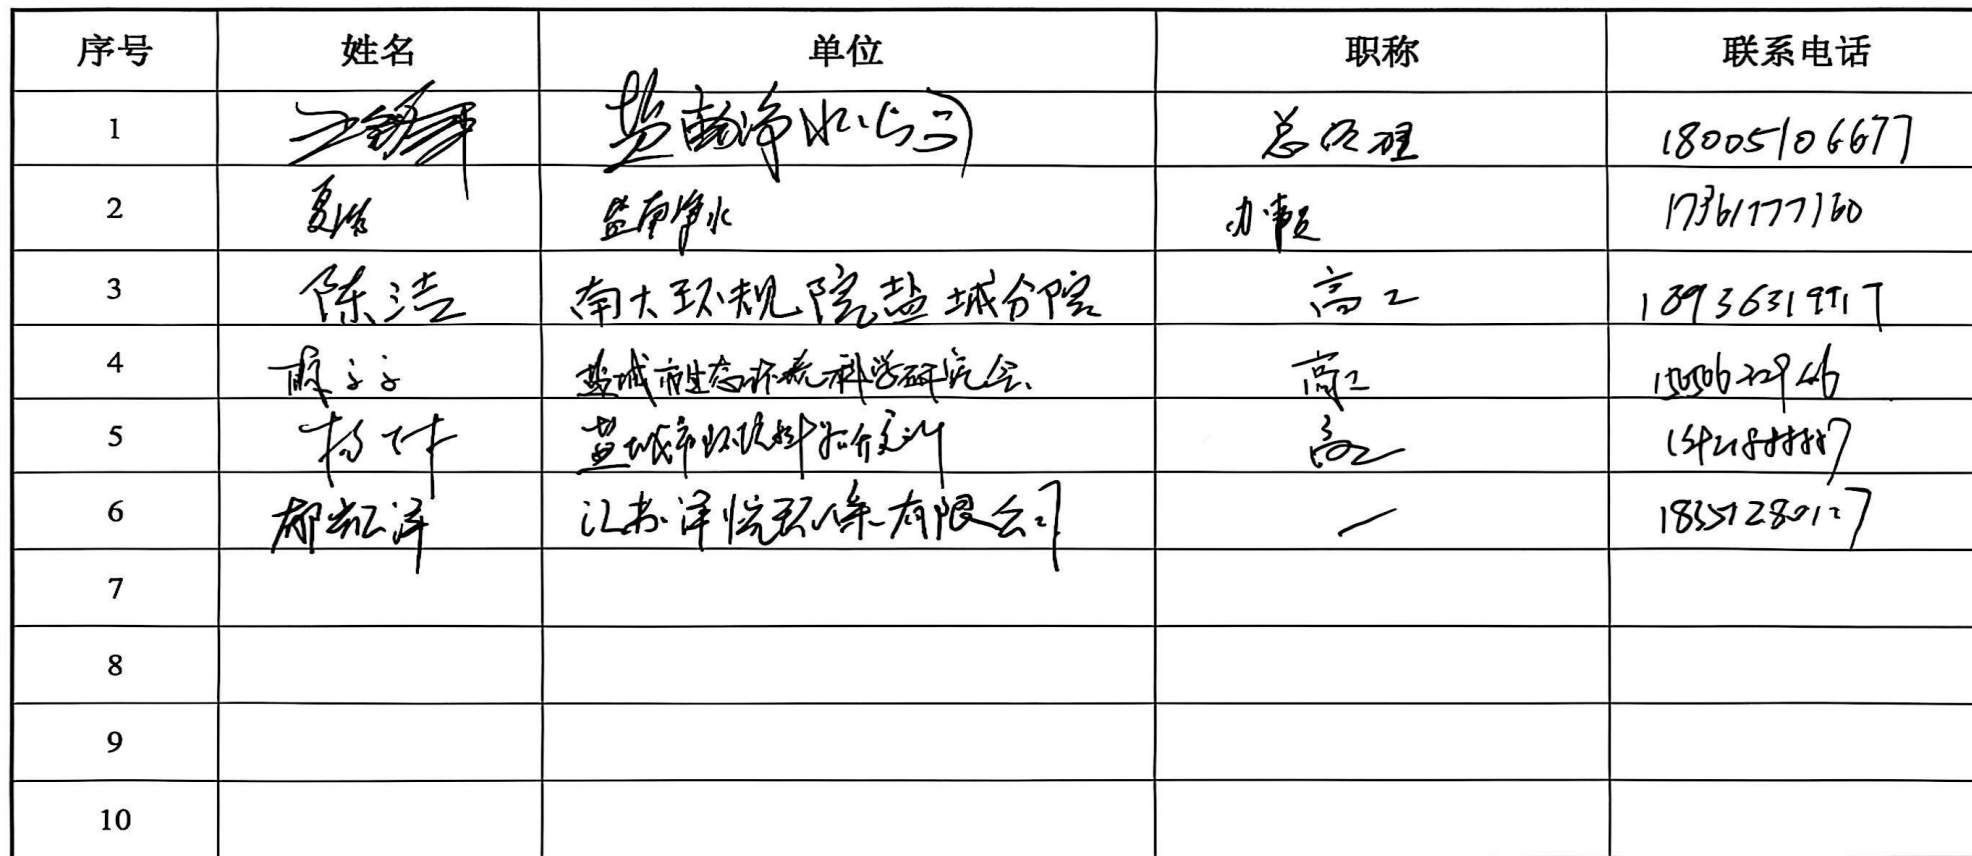 序号 姓名 单位 职称 联系电话
1 盐南净水公司 总经理 18005106677
2 夏浩 盐南净水 办事员 17361777160
3 陈洁 南大环规院盐城分院 高工 18936319917
4 盐城市生态环境科学研究会 高工
5 杨林 高工
6 郝凯泽 江苏泽悦环保有限公司 —
7
8
9
10